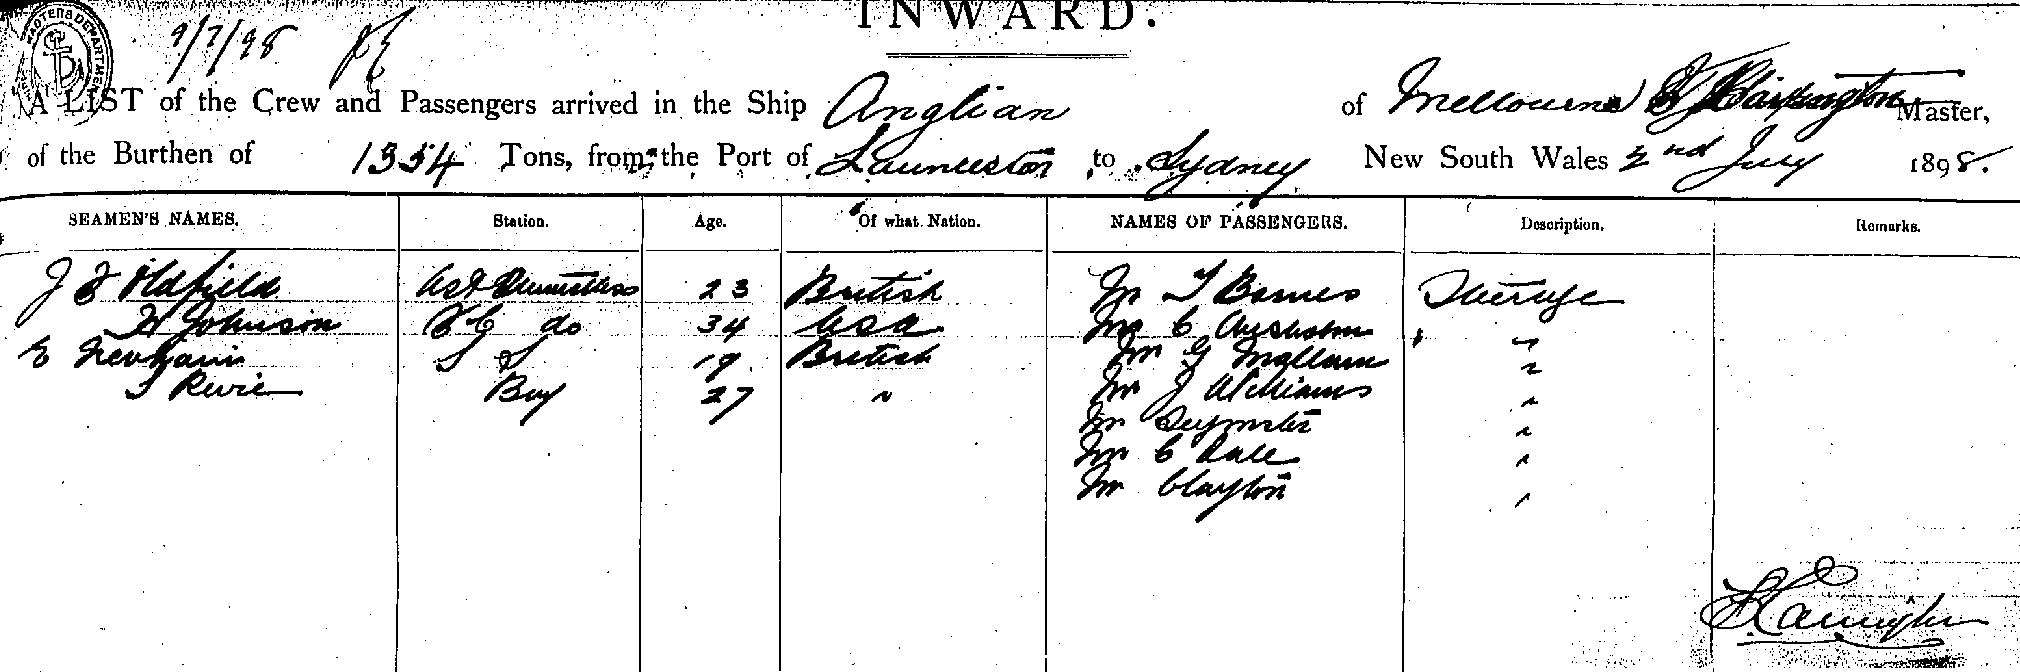 INWARD.
9/7/98
A LIST of the Crew and Passengers arrived in the Ship Anglian of Melbourne Master,
of the Burthen of 1354 Tons, from the Port of Launceston to Sydney New South Wales 2nd July 1898.
SEAMEN'S NAMES. Station. Age. Of what Nation. NAMES OF PASSENGERS. Description. Remarks.
J F Oldfield 23 British Mr T Barnes Steerage
H Johnson do 34 USA C Chisholm "
E 19 British Mr G Ingllam "
J Revie Boy 27 " Mr J Williams "
Mr "
Mr C Dale "
Mr Clayton "